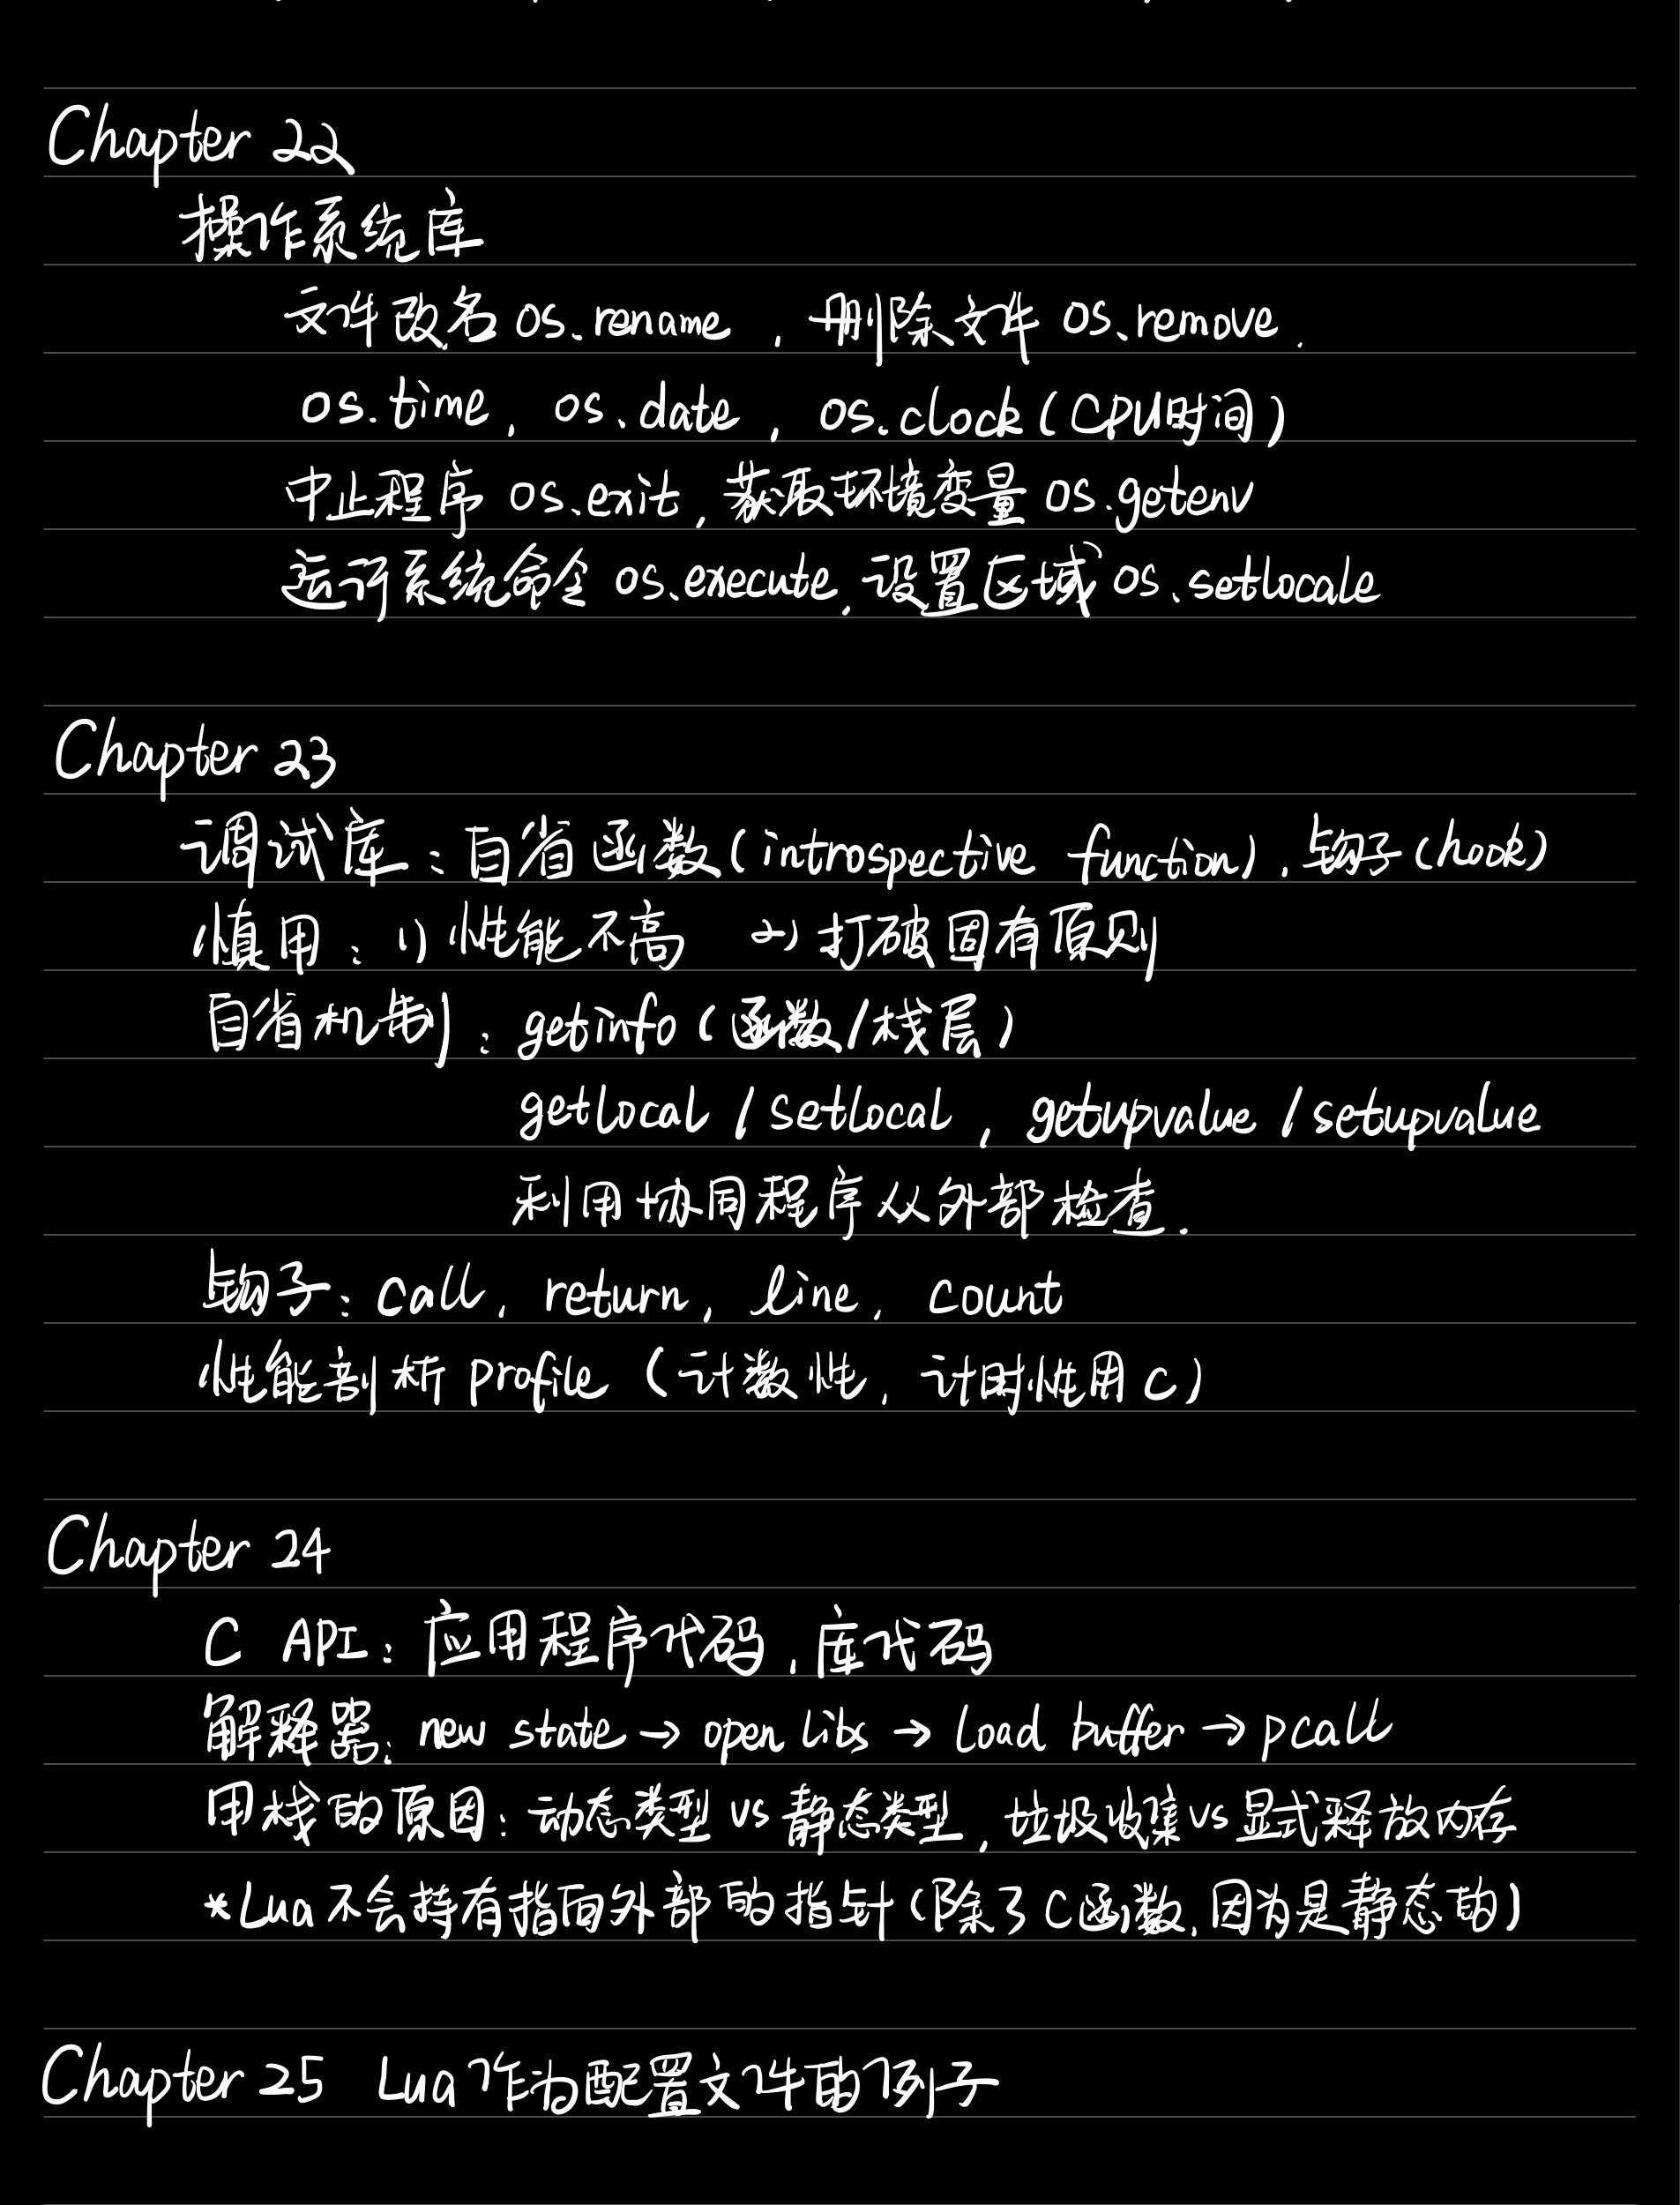 Chapter 22
操作系统库
文件改名 os.rename , 删除文件 os.remove.
os.time, os.date, os.clock(CPU时间)
中止程序 os.exit, 获取环境变量 os.getenv
运行系统命令 os.execute, 设置区域 os.setlocale
Chapter 23
调试库:自省函数(introspective function), 钩子(hook)
慎用: 1) 性能不高 2) 打破固有原则
自省机制: getinfo (函数/栈层)
getlocal / setlocal , getupvalue / setupvalue
利用协同程序从外部检查.
钩子: call, return, line, count
性能剖析 profile (计数性, 计时性用C)
Chapter 24
C API: 应用程序代码, 库代码
解释器: new state → open libs → load buffer → pcall
用栈的原因: 动态类型 vs 静态类型, 垃圾收集 vs 显式释放内存
*Lua不会持有指向外部的指针(除了C函数,因为是静态的)
Chapter 25 Lua作为配置文件的例子